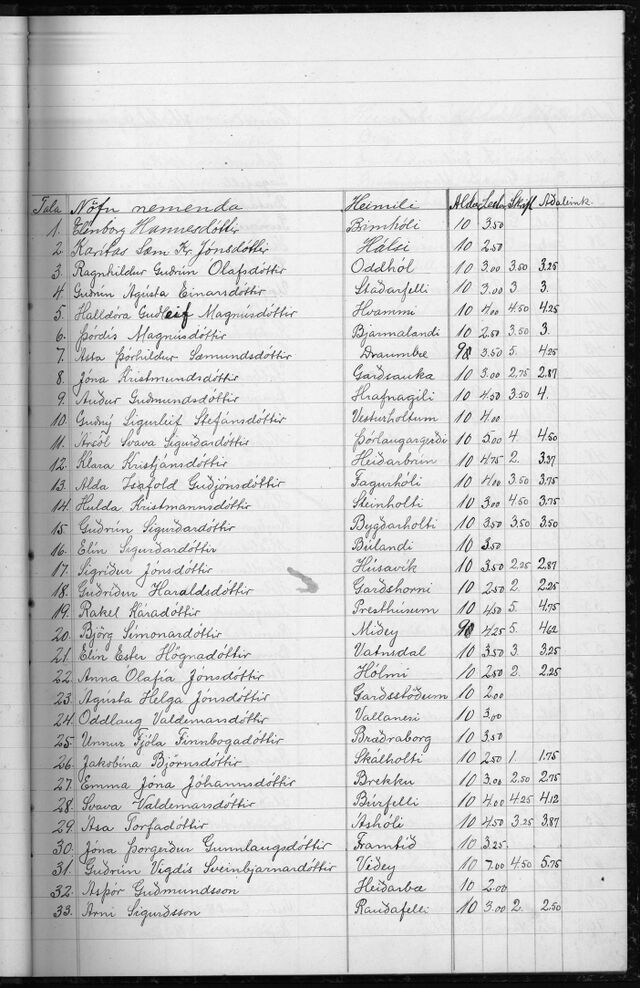 Tala Nöfn nemenda Heimili Aldur Lestur Skrift Aðaleink.
1. Elenborg Hannesdóttir Birnhóli 10 3.50
2. Karítas Sæm Kr. Jónsdóttir Hálsi 10 2.50
3. Ragnhildur Guðrún Ólafsdóttir Oddhól 10 3.00 3.50 3.25
4. Guðrún Ágústa Einarsdóttir Staðarfelli 10 3.00 3 3.
5. Halldóra Guðleif Magnúsdóttir Hvammi 10 4.00 4.50 4.25
6. Þórdís Magnúsdóttir Bjarmalandi 10 2.50 3.50 3.
7. Ásta Þórhildur Sæmundsdóttir Draumbæ 98 3.50 5. 4.25
8. Jóna Kristmundsdóttir Garðsauka 10 3.00 2.75 2.87
9. Auður Guðmundsdóttir Hrafnagili 10 4.50 3.50 4.
10. Guðný Sigurleif Stefánsdóttir Vesturholtum 10 4.00
11. Ársól Svava Sigurðardóttir Þórlaugargerði 10 5.00 4. 4.50
12. Klara Kristjánsdóttir Heiðarbrún 10 4.75 2. 3.37
13. Alda Ísafold Guðjónsdóttir Fagurhóli 10 4.00 3.50 3.75
14. Hulda Kristmannsdóttir Steinholti 10 3.00 4.50 3.75
15. Guðrún Sigurðardóttir Bygðarholti 10 3.50 3.50 3.50
16. Elín Sigurðardóttir Búlandi 10 3.50
17. Sigríður Jónsdóttir Húsavík 10 3.50 2.25 2.87
18. Guðríður Haraldsdóttir Garðshorni 10 2.50 2. 2.25
19. Rakel Káradóttir Presthúsum 10 4.50 5. 4.75
20. Björg Símonardóttir Miðey 98 4.25 5. 4.62
21. Elín Ester Högnadóttir Vatnsdal 10 3.50 3 3.25
22. Anna Ólafía Jónsdóttir Hólmi 10 2.50 2. 2.25
23. Ágústa Helga Jónsdóttir Garðsstöðum 10 2.00
24. Oddlaug Valdemarsdóttir Vallanesi 10 3.00
25. Unnur Fjóla Finnbogadóttir Bræðraborg 10 3.50
26. Jakobína Björnsdóttir Skálholti 10 2.50 1. 1.75
27. Emma Jóna Jóhannsdóttir Brekku 10 3.00 2.50 2.75
28. Svava Valdemarsdóttir Búrfelli 10 4.00 4.25 4.12
29. Ása Torfadóttir Áshóli 10 4.50 3.25 3.87
30. Jóna Þorgerður Gunnlaugsdóttir Framtíð 10 3.25
31. Guðrún Vigdís Sveinbjarnardóttir Viðey 10 7.00 4.50 5.75
32. Asþór Guðmundsson Heiðarbæ 10 2.00
33. Árni Sigurðsson Rauðafelli 10 3.00 2. 2.50